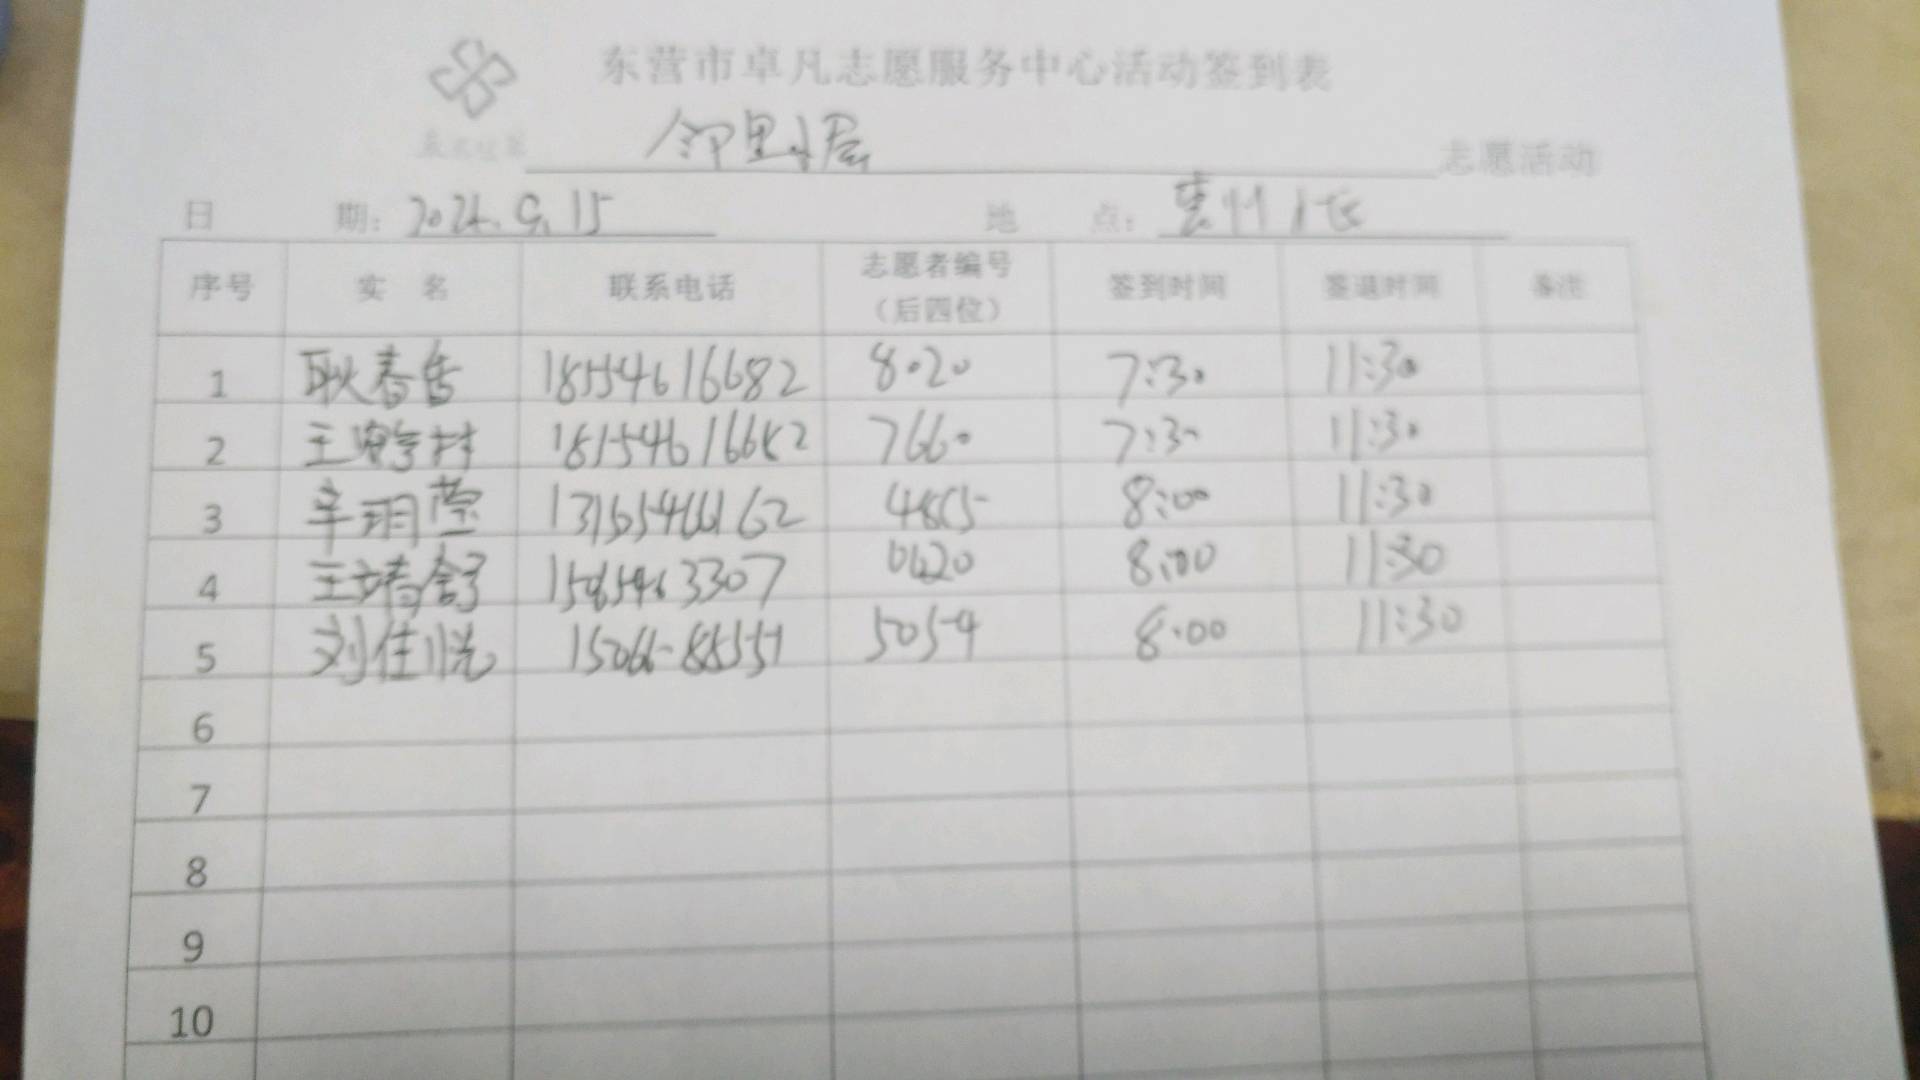 东营市卓凡志愿服务中心活动签到表
邻里小屋 志愿活动
日 期: 2024.9.15 地 点: 惠州小区
序号 实 名 联系电话 志愿者编号（后四位） 签到时间 签退时间 备注
1 耿春香 18554616682 8020 7:30 11:30
2 7660 7:30 11:30
3 辛玥莹 8:00 11:30
4 王靖舒 15865463307 0420 8:00 11:30
5 刘佳悦 5054 8:00 11:30
6
7
8
9
10